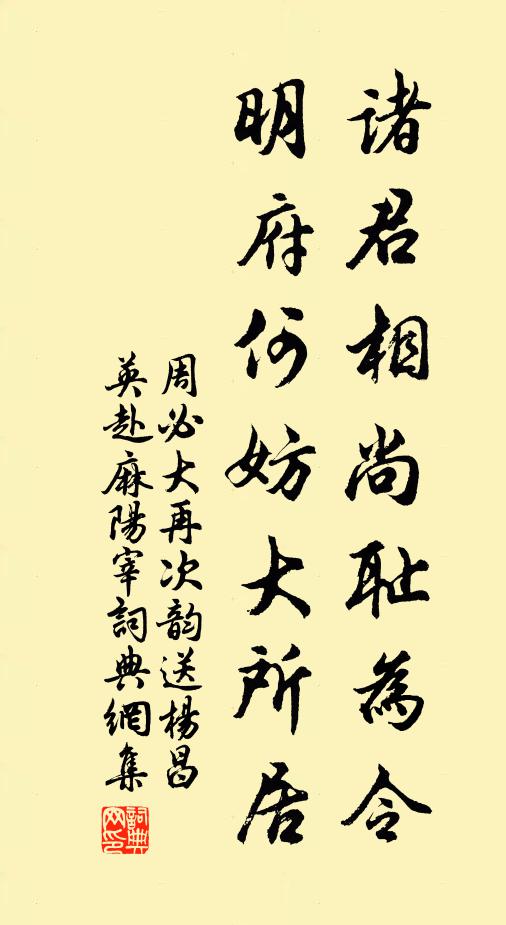 諸君相尚耻為令
明府何妨大所居
周必大再次韵送楊昌
英赴麻陽宰詞典網集
詞典
网印